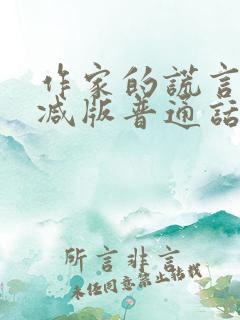 作家的谎言
减版普通话
所言非言
未经同意禁止转载